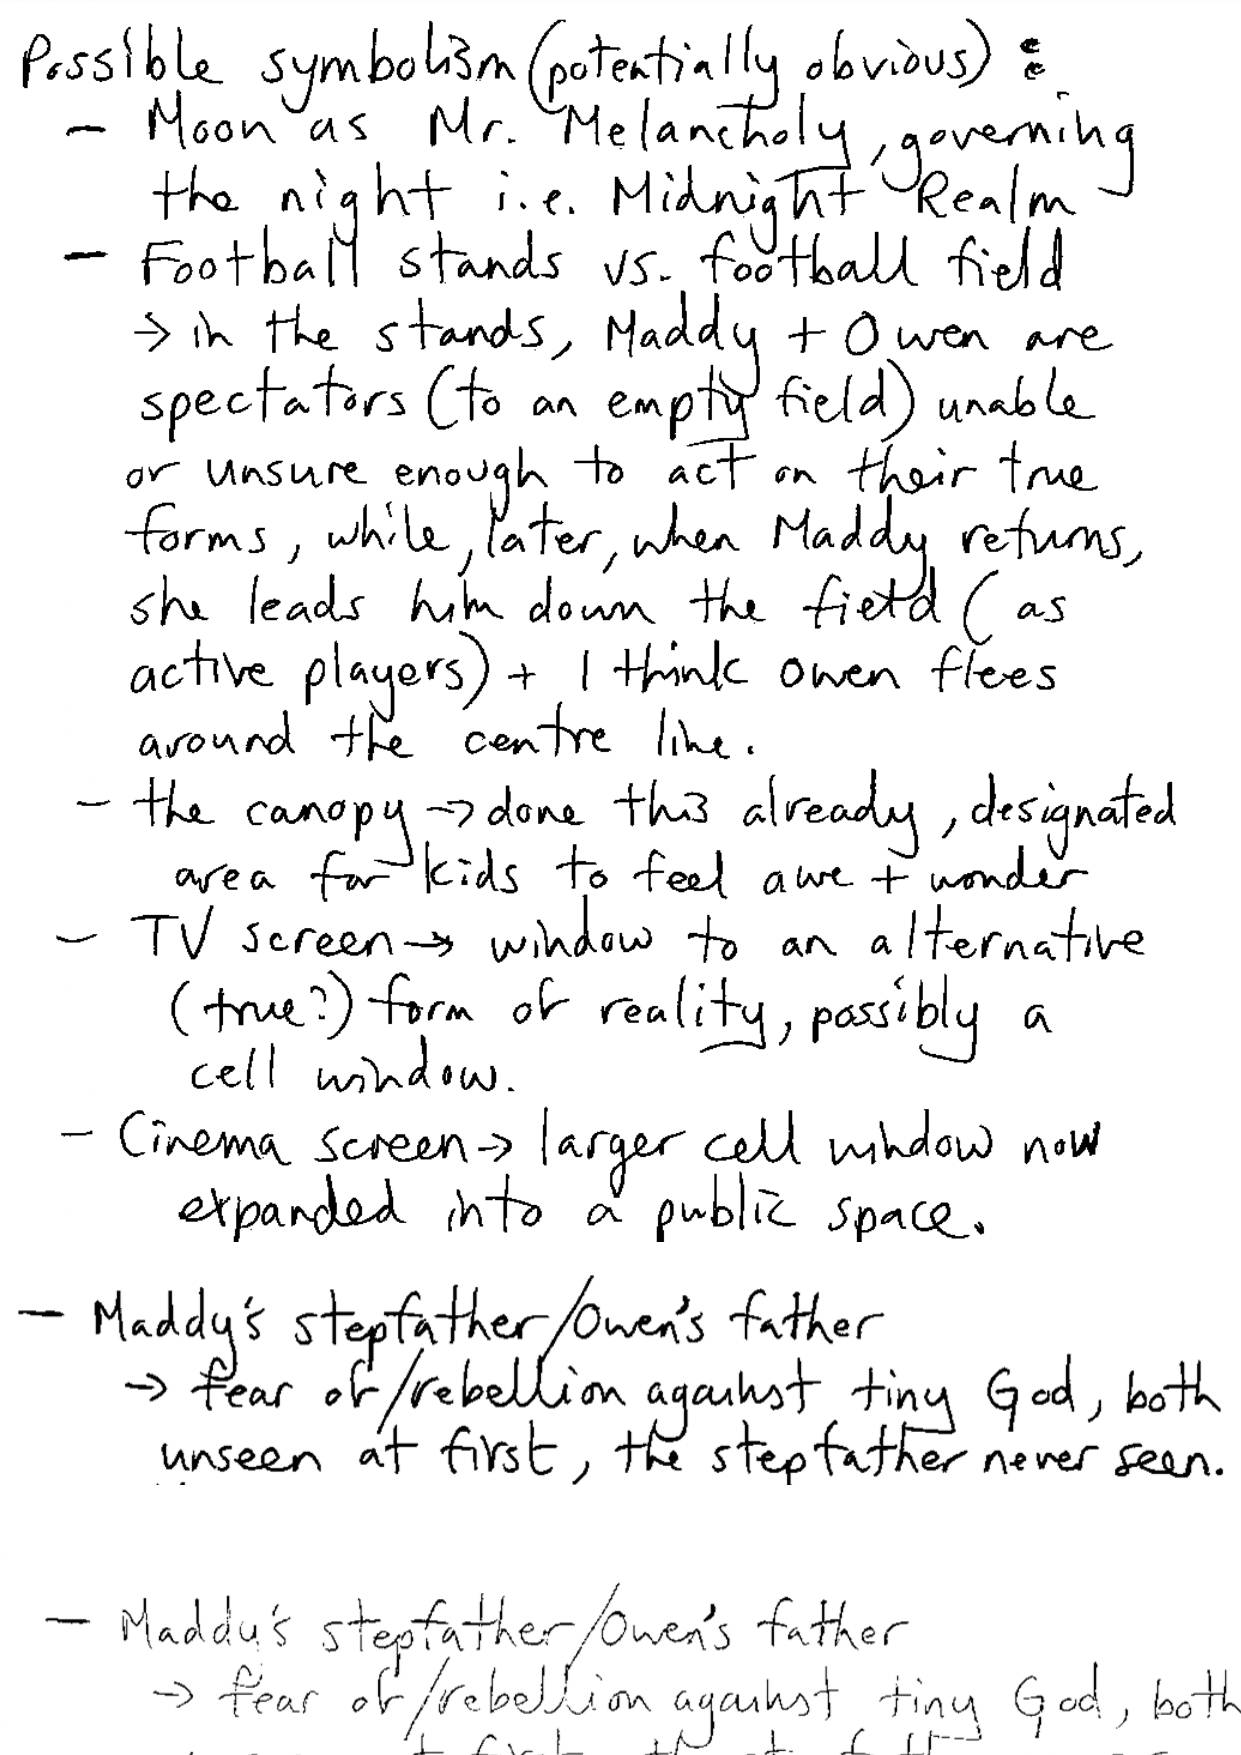 Possible symbolism (potentially obvious):
- Moon as Mr. Melancholy, governing
the night i.e. Midnight Realm
- Football stands vs. football field
→ in the stands, Maddy + Owen are
spectators (to an empty field) unable
or unsure enough to act on their true
forms, while, later, when Maddy returns,
she leads him down the field (as
active players) + I think Owen flees
around the centre line.
- the canopy → done this already, designated
area for kids to feel awe + wonder
- TV screen → window to an alternative
(true?) form of reality, possibly a
cell window.
- Cinema screen → larger cell window now
expanded into a public space.
- Maddy's stepfather/Owen's father
→ fear of/rebellion against tiny God, both
unseen at first, the stepfather never seen.
- Maddy's stepfather/Owen's father
→ fear of/rebellion against tiny God, both